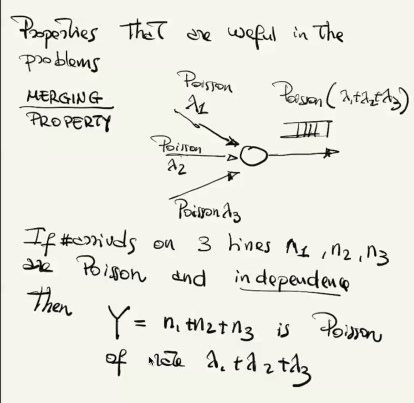 Properties that are useful in the
problems
MERGING
PROPERTY
Poisson
λ1
Poisson (λ1+λ2+λ3)
Poisson
λ2
Poisson λ3
If #arrivals on 3 lines n1, n2, n3
are Poisson and independence
Then
Y = n1+n2+n3 is Poisson
of rate λ1 + λ2 + λ3